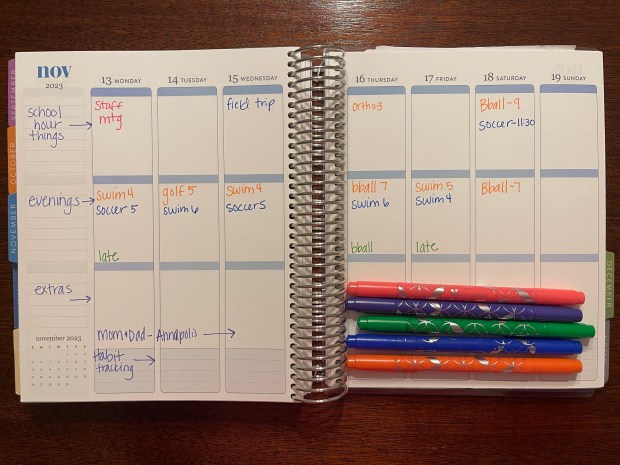 nov
2023
13 MONDAY
14 TUESDAY
15 WEDNESDAY
16 THURSDAY
17 FRIDAY
18 SATURDAY
19 SUNDAY
SEPTEMBER
OCTOBER
NOVEMBER
DECEMBER
school
hour
things
staff
mtg
field trip
ortho 3
Bball-9
soccer-11:30
evenings
swim 4
soccer 5
golf 5
swim 6
swim 4
soccer 5
bball 7
swim 6
swim 5
swim 4
Bball-7
late
bball
late
extras
mom+Dad-Annapolis
november 2023
Habit
tracking